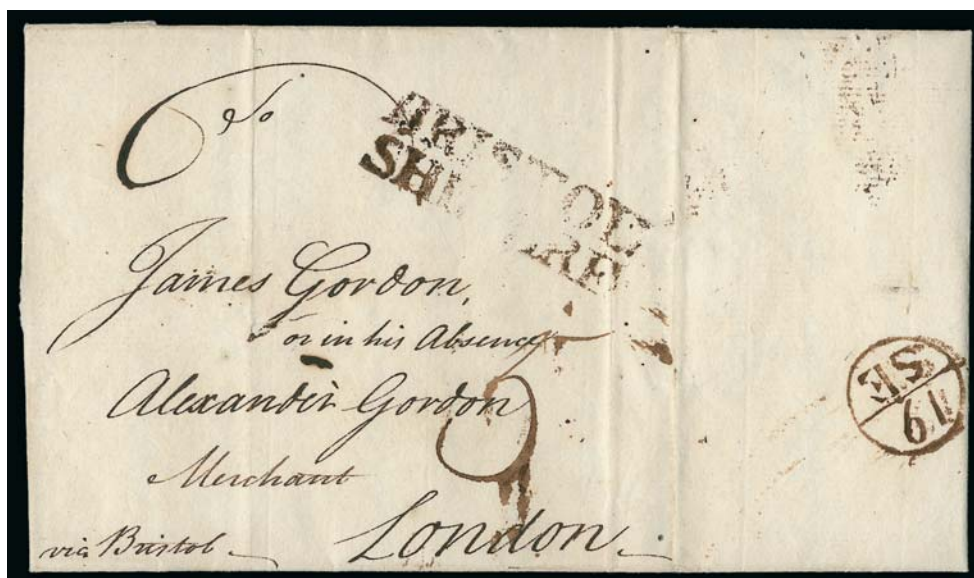 To
BRISTOL
SHI IRE
James Gordon,
or in his Absence
Alexander Gordon
Merchant
via Bristol
London
SE
19